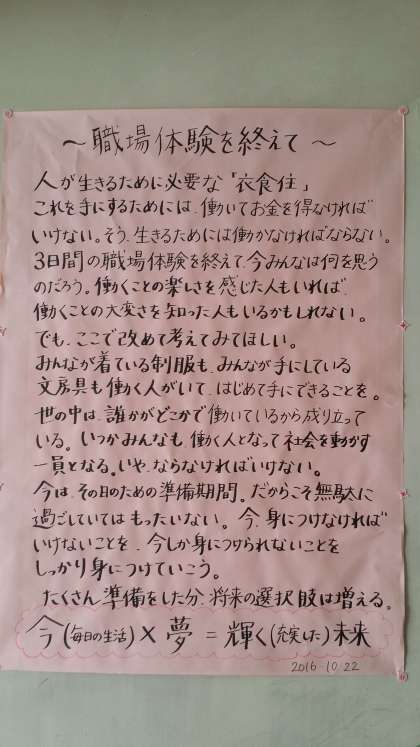 ～職場体験を終えて～
人が生きるために必要な「衣食住」
これを手にするためには、働いてお金を得なければ
いけない。そう、生きるためには働かなければならない。
3日間の職場体験を終えて、今みんなは何を思う
のだろう。働くことの楽しさを感じた人もいれば、
働くことの大変さを知った人もいるかもしれない。
でも、ここで改めて考えてみてほしい。
みんなが着ている制服も、みんなが手にしている
文房具も働く人がいて、はじめて手にできることを。
世の中は、誰かがどこかで働いているから成り立って
いる。いつかみんなも、働く人となって社会を動かす
一員となる。いや、ならなければいけない。
今は、その日のための準備期間。だからこそ無駄に
過ごしていてはもったいない。今、身につけなければ
いけないことを、今しか身につけられないことを
しっかり身につけていこう。
たくさん準備をした分、将来の選択肢は増える。
今(毎日の生活)×夢=輝く(充実した)未来
2016.10.22